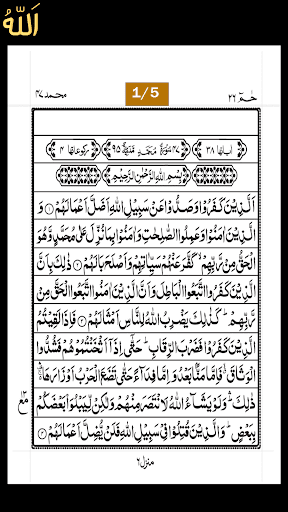 اَللّٰهُ
محمد ٤٧
1/5
حٰمٓ ٢٦
اٰیاتها ٣٨ ٤٧ سُوْرَةُ مُحَمَّدٍ مَّدَنِیَّةٌ ٩٥ رکوعاتها ٤
بِسْمِ اللّٰهِ الرَّحْمٰنِ الرَّحِیْمِ
اَلَّذِیْنَ كَفَرُوْا وَصَدُّوْا عَنْ سَبِیْلِ اللّٰهِ اَضَلَّ اَعْمَالَهُمْ ۝١ وَ
الَّذِیْنَ اٰمَنُوْا وَعَمِلُوا الصّٰلِحٰتِ وَاٰمَنُوْا بِمَا نُزِّلَ عَلٰی مُحَمَّدٍ وَّهُوَ
الْحَقُّ مِنْ رَّبِّهِمْ ۙ كَفَّرَ عَنْهُمْ سَیِّاٰتِهِمْ وَاَصْلَحَ بَالَهُمْ ۝٢ ذٰلِكَ بِاَنَّ
الَّذِیْنَ كَفَرُوا اتَّبَعُوا الْبَاطِلَ وَاَنَّ الَّذِیْنَ اٰمَنُوا اتَّبَعُوا الْحَقَّ مِنْ
رَّبِّهِمْ ؕ كَذٰلِكَ یَضْرِبُ اللّٰهُ لِلنَّاسِ اَمْثَالَهُمْ ۝٣ فَاِذَا لَقِیْتُمُ
الَّذِیْنَ كَفَرُوْا فَضَرْبَ الرِّقَابِ ؕ حَتّٰۤی اِذَاۤ اَثْخَنْتُمُوْهُمْ فَشُدُّوا
الْوَثَاقَ ۙ فَاِمَّا مَنًّۢا بَعْدُ وَاِمَّا فِدَآءً حَتّٰی تَضَعَ الْحَرْبُ اَوْزَارَهَا ۛ۬ۚ
ذٰلِكَ ۛؕ وَلَوْ یَشَآءُ اللّٰهُ لَانْتَصَرَ مِنْهُمْ وَلٰكِنْ لِّیَبْلُوَا۠ بَعْضَكُمْ
بِبَعْضٍ ؕ وَالَّذِیْنَ قُتِلُوْا فِیْ سَبِیْلِ اللّٰهِ فَلَنْ یُّضِلَّ اَعْمَالَهُمْ ۝٤
منزل ٦